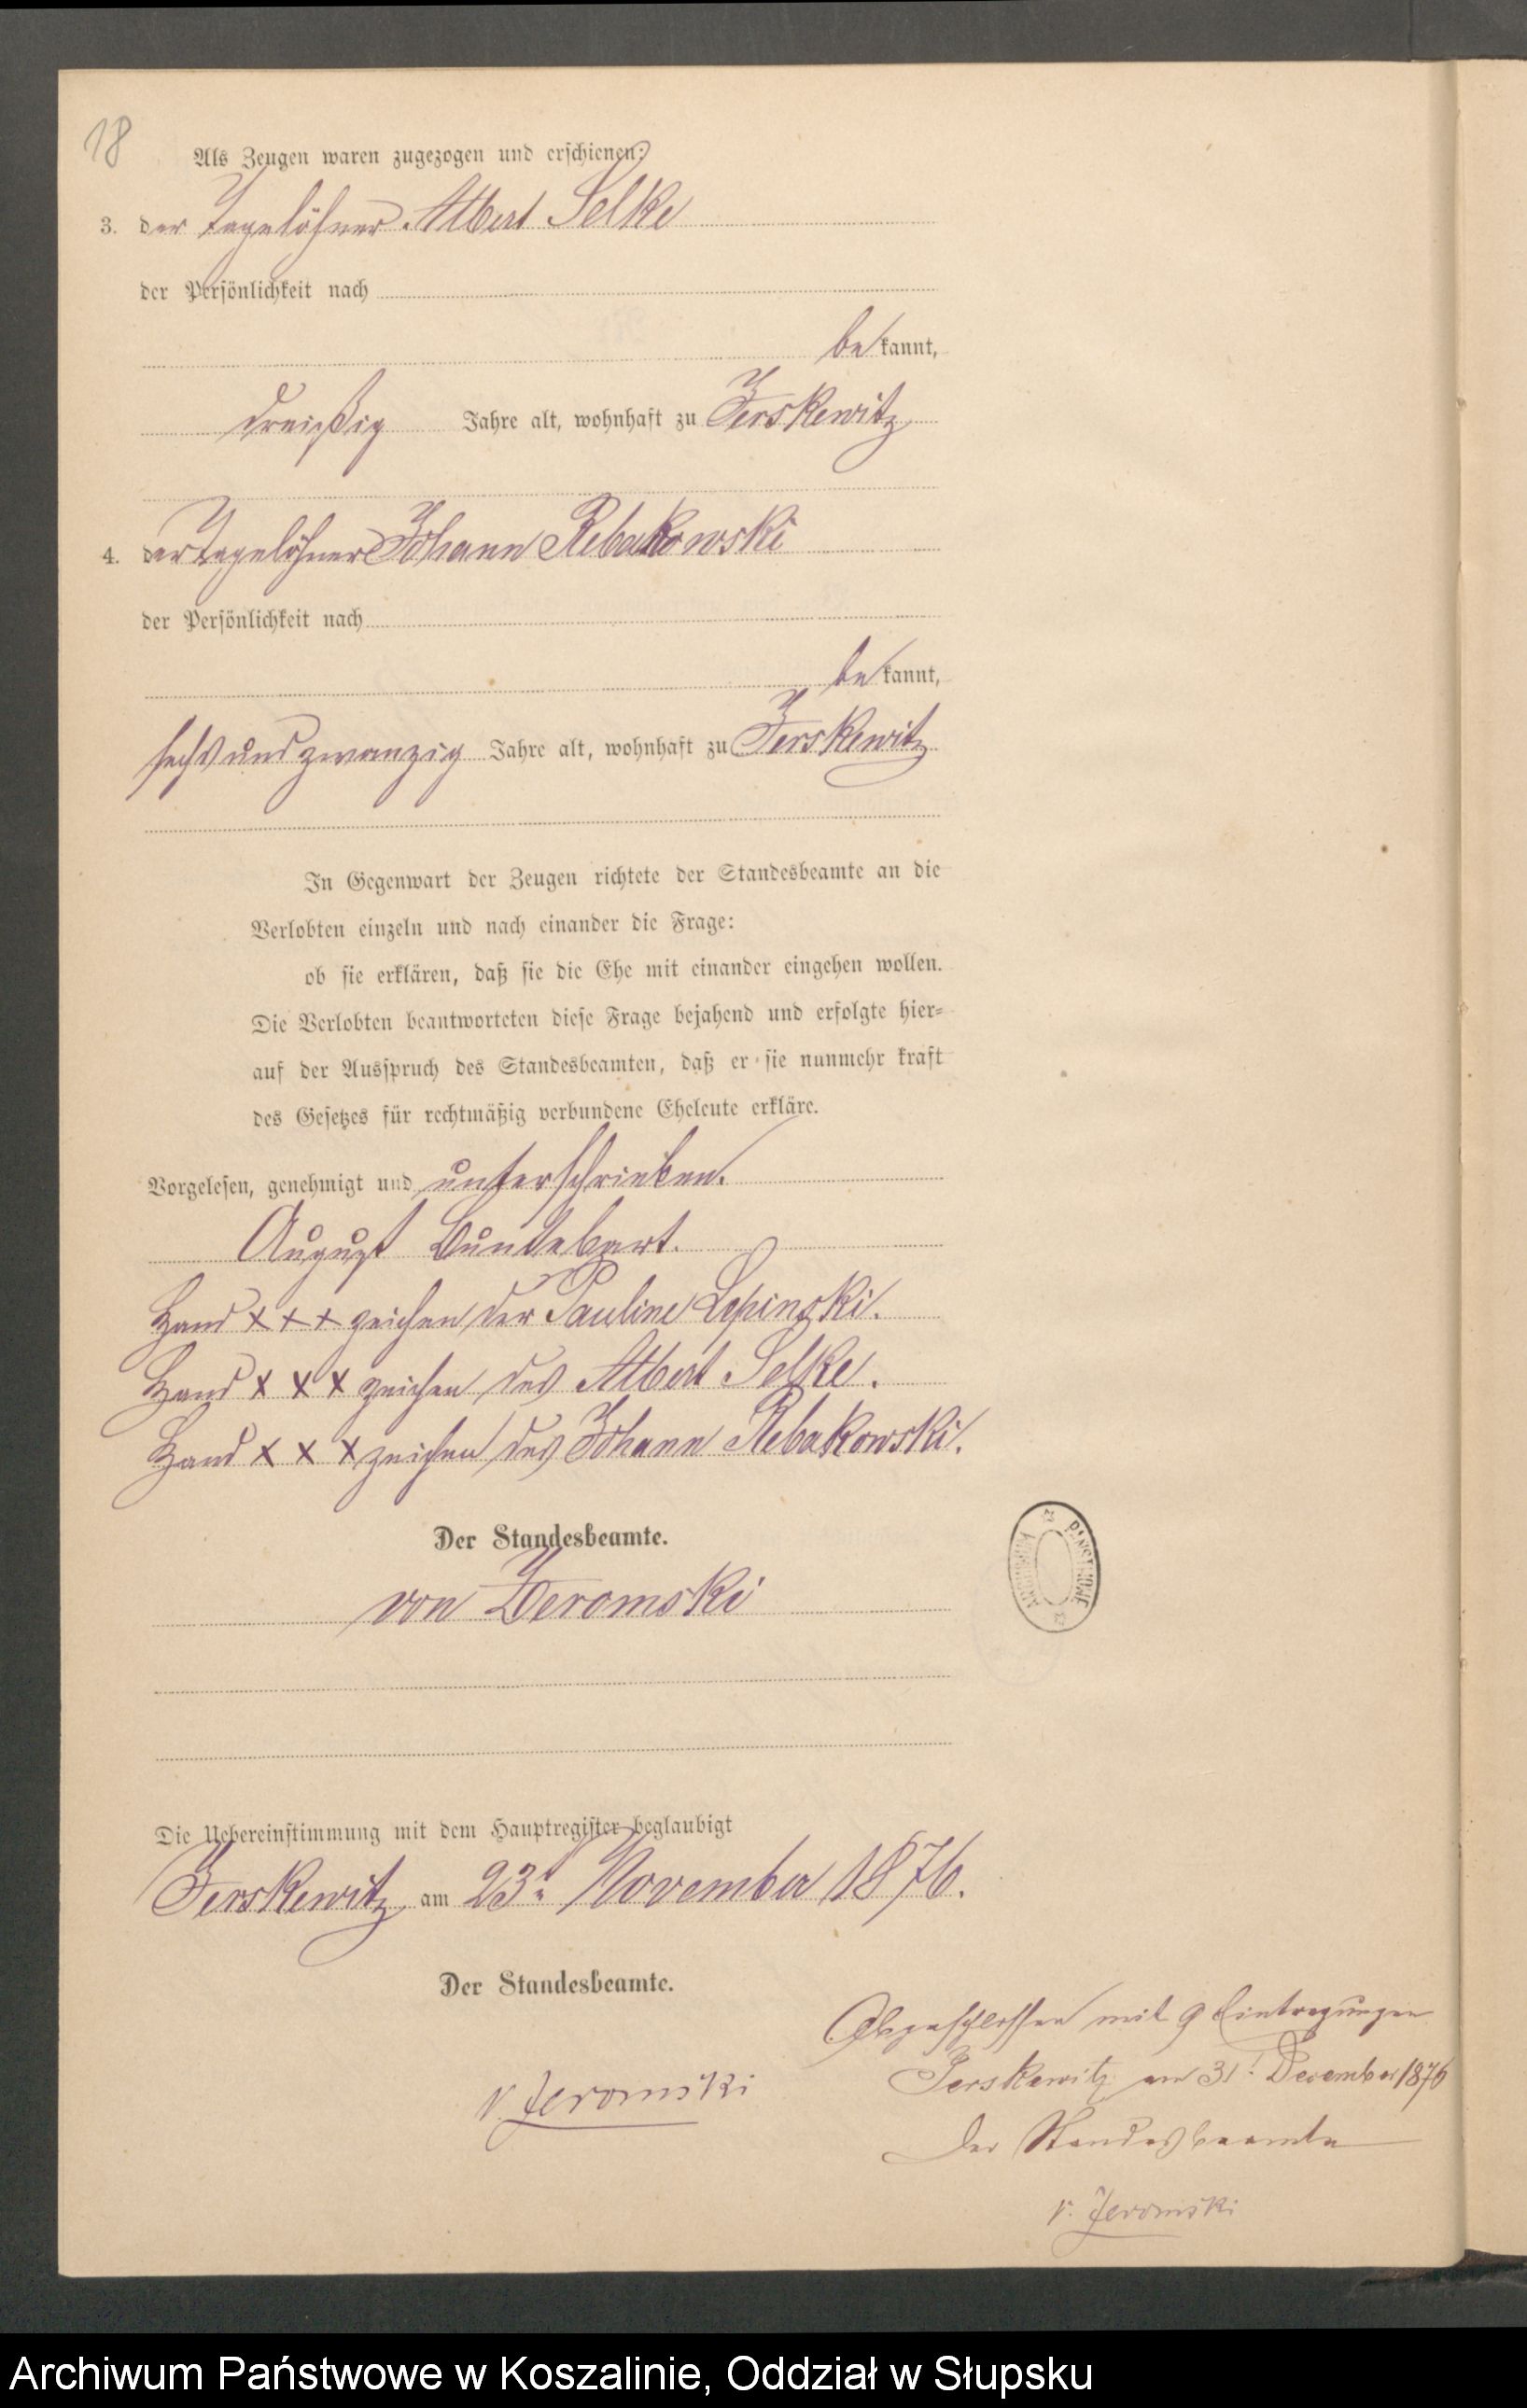 18
Als Zeugen waren zugezogen und erschienen:
3. der Tagelöhner Albert Selke
der Persönlichkeit nach
bekannt,
dreißig Jahre alt, wohnhaft zu Jerskewitz
4. der Tagelöhner Johann Rebakowski
der Persönlichkeit nach
bekannt,
sechs und zwanzig Jahre alt, wohnhaft zu Jerskewitz
In Gegenwart der Zeugen richtete der Standesbeamte an die
Verlobten einzeln und nach einander die Frage:
ob sie erklären, daß sie die Ehe mit einander eingehen wollen.
Die Verlobten beantworteten diese Frage bejahend und erfolgte hier-
auf der Ausspruch des Standesbeamten, daß er sie nunmehr kraft
des Gesetzes für rechtmäßig verbundene Eheleute erkläre.
Vorgelesen, genehmigt und unterschrieben.
August Buntebart.
Hand x x x zeichen der Pauline Lepinski.
Hand x x x zeichen des Albert Selke.
Hand x x x zeichen des Johann Rebakowski.
Der Standesbeamte.
von Jeromski
ARCHIWUM PAŃSTWOWE
Die Uebereinstimmung mit dem Hauptregister beglaubigt
Jerskewitz am 23t. November 1876.
Der Standesbeamte.
v. Jeromski
Abgeschlossen mit 9 Eintragungen
Jerskewitz am 31t. December 1876
Der Standesbeamte
v. Jeromski
Archiwum Państwowe w Koszalinie, Oddział w Słupsku